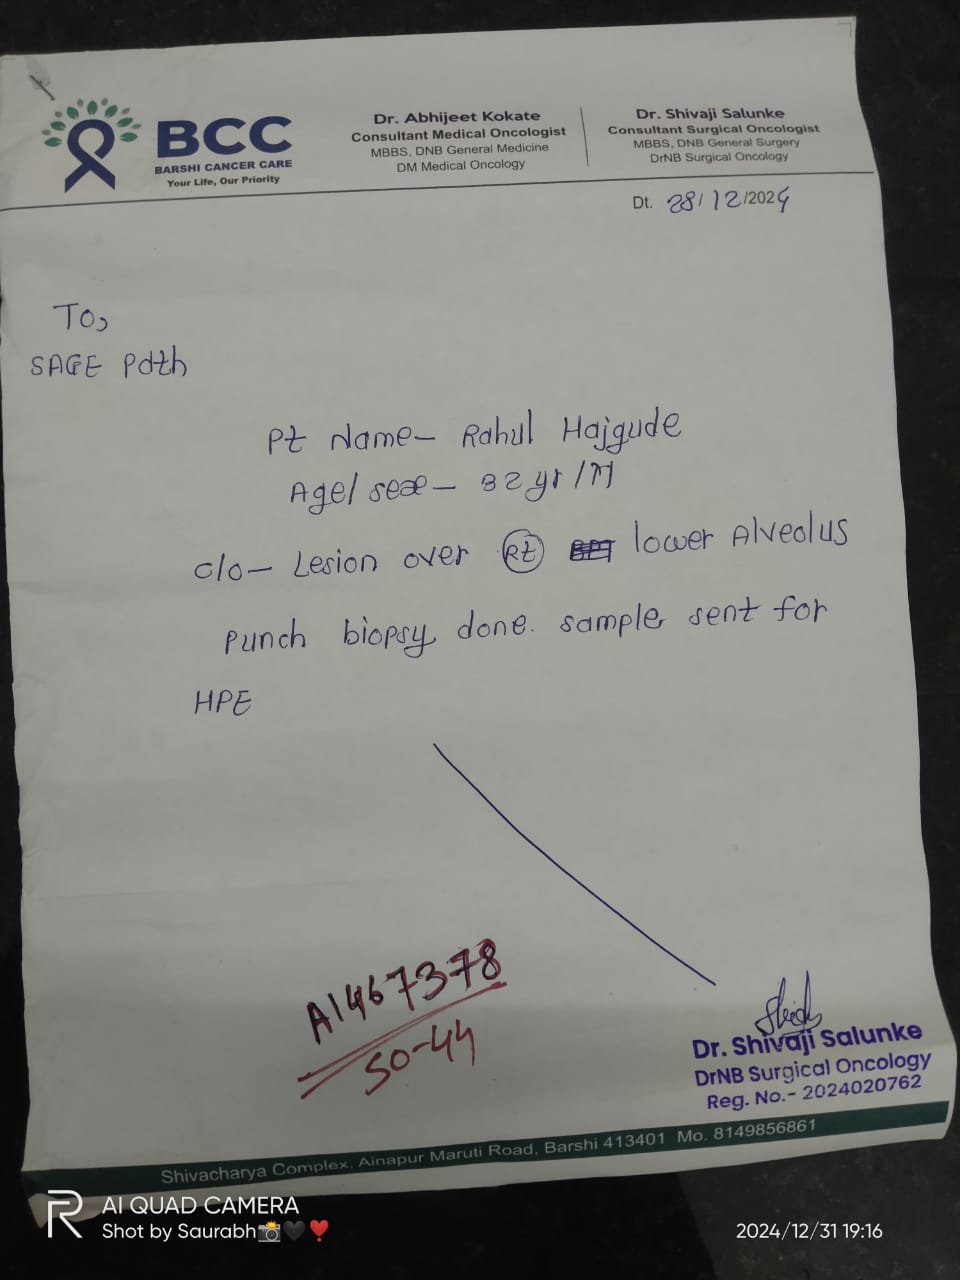 BCC
BARSHI CANCER CARE
Your Life, Our Priority
Dr. Abhijeet Kokate
Consultant Medical Oncologist
MBBS, DNB General Medicine
DM Medical Oncology
Dr. Shivaji Salunke
Consultant Surgical Oncologist
MBBS, DNB General Surgery
DrNB Surgical Oncology
Dt. 28/12/2024
To,
SAGE Path
Pt Name- Rahul Hajgude
Age/sex- 32 yr/M
c/o- Lesion over Rt lower Alveolus
Punch biopsy done. sample sent for
HPE
A1467378
SO-44
Dr. Shivaji Salunke
DrNB Surgical Oncology
Reg. No.- 2024020762
Shivacharya Complex, Ainapur Maruti Road, Barshi 413401 Mo. 8149856861
AI QUAD CAMERA
Shot by Saurabh📸🖤❣️
2024/12/31 19:16